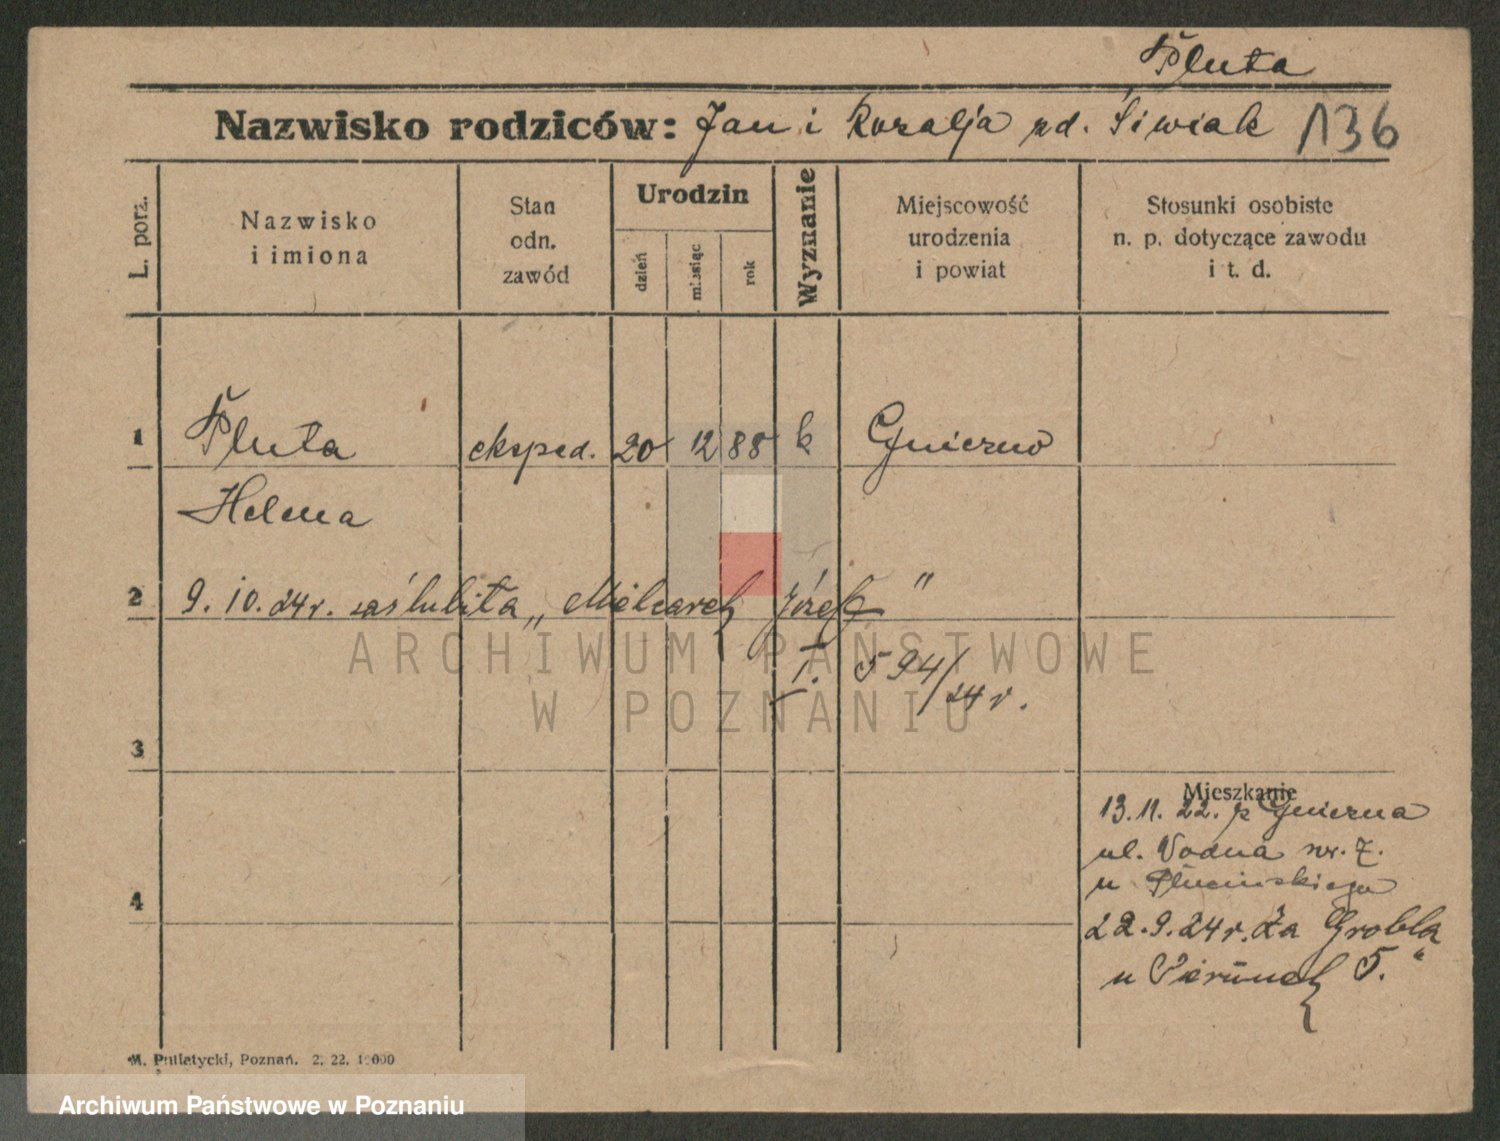 Pluta
Nazwisko rodziców: Jan i Rozalja zd. Śiwiak 136
L. porz.
Nazwisko
i imiona
Stan
odn.
zawód
Urodzin
dzień
miesiąc
rok
Wyznanie
Miejscowość
urodzenia
i powiat
Stosunki osobiste
n. p. dotyczące zawodu
i t. d.
1 Pluta eksped. 20 12 88 k Gniezno
Helena
2 9. 10. 24 r. zaślubiła „Mielcarek Józef"
T. 594/24 r.
3
Mieszkanie
13. 11. 22. z Gniezna
ul. Wodna nr. 7.
u Plucińskiego
4
22. 9. 24 r. Za Groblą
u 5.
M. Putiatycki, Poznań. 2. 22. 1000
ARCHIWUM PAŃSTWOWE
W POZNANIU
Archiwum Państwowe w Poznaniu